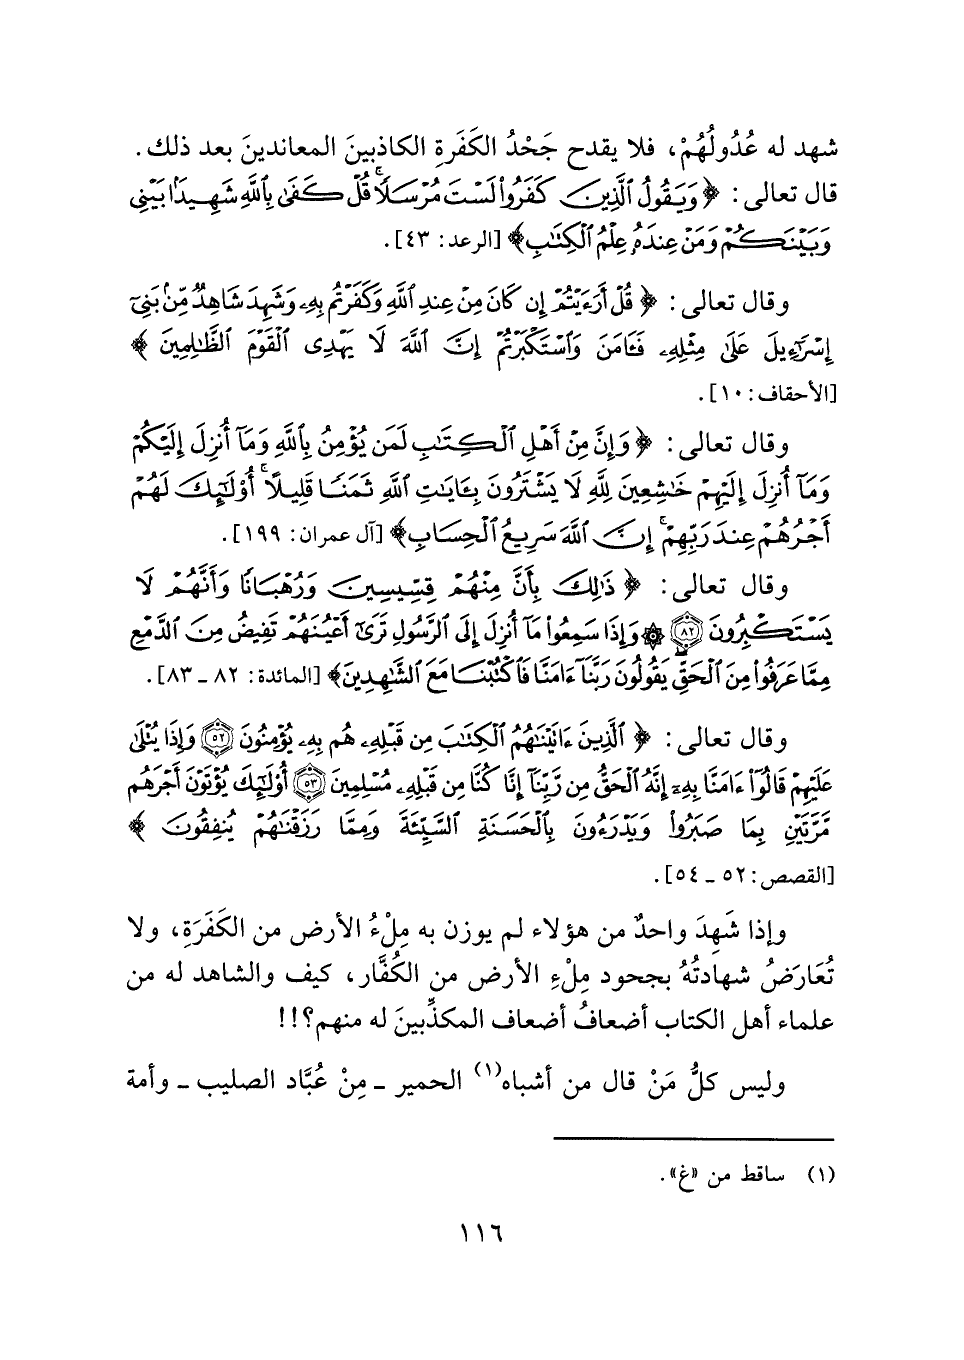 شهد له عُدُولُهُمْ، فلا يقدح جَحْدُ الكَفَرةِ الكاذبينَ المعاندينَ بعد ذلك.
قال تعالى: ﴿وَيَقُولُ ٱلَّذِينَ كَفَرُوا۟ لَسْتَ مُرْسَلًا ۚ قُلْ كَفَىٰ بِٱللَّهِ شَهِيدًۢا بَيْنِى
وَبَيْنَكُمْ وَمَنْ عِندَهُۥ عِلْمُ ٱلْكِتَـٰبِ﴾ [الرعد: ٤٣].
وقال تعالى: ﴿قُلْ أَرَءَيْتُمْ إِن كَانَ مِنْ عِندِ ٱللَّهِ وَكَفَرْتُم بِهِۦ وَشَهِدَ شَاهِدٌ مِّنۢ بَنِىٓ
إِسْرَٰٓءِيلَ عَلَىٰ مِثْلِهِۦ فَـَٔامَنَ وَٱسْتَكْبَرْتُمْ إِنَّ ٱللَّهَ لَا يَهْدِى ٱلْقَوْمَ ٱلظَّـٰلِمِينَ﴾
[الأحقاف: ١٠].
وقال تعالى: ﴿وَإِنَّ مِنْ أَهْلِ ٱلْكِتَـٰبِ لَمَن يُؤْمِنُ بِٱللَّهِ وَمَآ أُنزِلَ إِلَيْكُمْ
وَمَآ أُنزِلَ إِلَيْهِمْ خَـٰشِعِينَ لِلَّهِ لَا يَشْتَرُونَ بِـَٔايَـٰتِ ٱللَّهِ ثَمَنًا قَلِيلًا ۗ أُو۟لَـٰٓئِكَ لَهُمْ
أَجْرُهُمْ عِندَ رَبِّهِمْ ۗ إِنَّ ٱللَّهَ سَرِيعُ ٱلْحِسَابِ﴾ [آل عمران: ١٩٩].
وقال تعالى: ﴿ذَٰلِكَ بِأَنَّ مِنْهُمْ قِسِّيسِينَ وَرُهْبَانًا وَأَنَّهُمْ لَا
يَسْتَكْبِرُونَ ٨٢ ۞ وَإِذَا سَمِعُوا۟ مَآ أُنزِلَ إِلَى ٱلرَّسُولِ تَرَىٰٓ أَعْيُنَهُمْ تَفِيضُ مِنَ ٱلدَّمْعِ
مِمَّا عَرَفُوا۟ مِنَ ٱلْحَقِّ يَقُولُونَ رَبَّنَآ ءَامَنَّا فَٱكْتُبْنَا مَعَ ٱلشَّـٰهِدِينَ﴾ [المائدة: ٨٢ ـ ٨٣].
وقال تعالى: ﴿ٱلَّذِينَ ءَاتَيْنَـٰهُمُ ٱلْكِتَـٰبَ مِن قَبْلِهِۦ هُم بِهِۦ يُؤْمِنُونَ ٥٢ وَإِذَا يُتْلَىٰ
عَلَيْهِمْ قَالُوٓا۟ ءَامَنَّا بِهِۦٓ إِنَّهُ ٱلْحَقُّ مِن رَّبِّنَآ إِنَّا كُنَّا مِن قَبْلِهِۦ مُسْلِمِينَ ٥٣ أُو۟لَـٰٓئِكَ يُؤْتَوْنَ أَجْرَهُم
مَّرَّتَيْنِ بِمَا صَبَرُوا۟ وَيَدْرَءُونَ بِٱلْحَسَنَةِ ٱلسَّيِّئَةَ وَمِمَّا رَزَقْنَـٰهُمْ يُنفِقُونَ﴾
[القصص: ٥٢ ـ ٥٤].
وإذا شَهِدَ واحدٌ من هؤلاء لم يوزن به مِلْءُ الأرض من الكَفَرَةِ، ولا
تُعَارَضُ شهادتُهُ بجحود مِلْءِ الأرض من الكُفَّار، كيف والشاهد له من
علماء أهل الكتاب أضعافُ أضعاف المكذِّبينَ له منهم؟!!
وليس كلُّ مَنْ قال من أشباه(١) الحمير ـ مِنْ عُبَّاد الصليب ـ وأمة
(١) ساقط من «غ».
١١٦